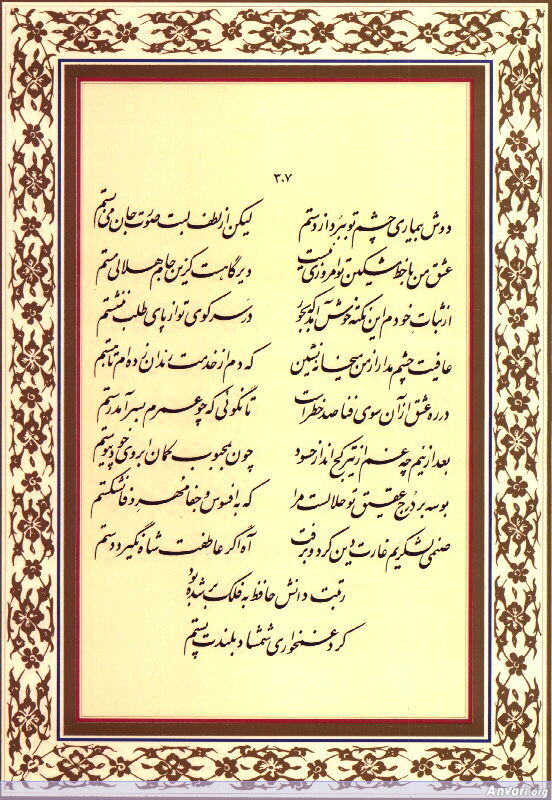 ۳۰۷
دوش بیماری چشم تو ببرد از دستم لیکن از لطف لبت صورت جان می‌بستم
عشق من با خط مشکین تو امروزی نیست دیرگاهست کزین جام هلالی مستم
از ثبات خودم این نکته خوش آمد که بجور در سر کوی تو از پای طلب ننشستم
عافیت چشم مدار از من میخانه نشین که دم از خدمت رندان زده‌ام تا هستم
در ره عشق از آن سوی فنا صد خطرست تا نگوئی که چو عمرم بسر آمد رستم
بعد ازینم چه غم از تیر کج انداز حسود چون بمحبوب کمان ابروی خود پیوستم
بوسه بر درج عقیق تو حلالست مرا که به افسوس و جفا مهر وفا نشکستم
صنمی لشکریم غارت دین کرد و برفت آه اگر عاطفت شاه نگیرد دستم
رتبت دانش حافظ به فلک بر شده بود
کرد غمخواری شمشاد بلندت پستم
Anvari.org